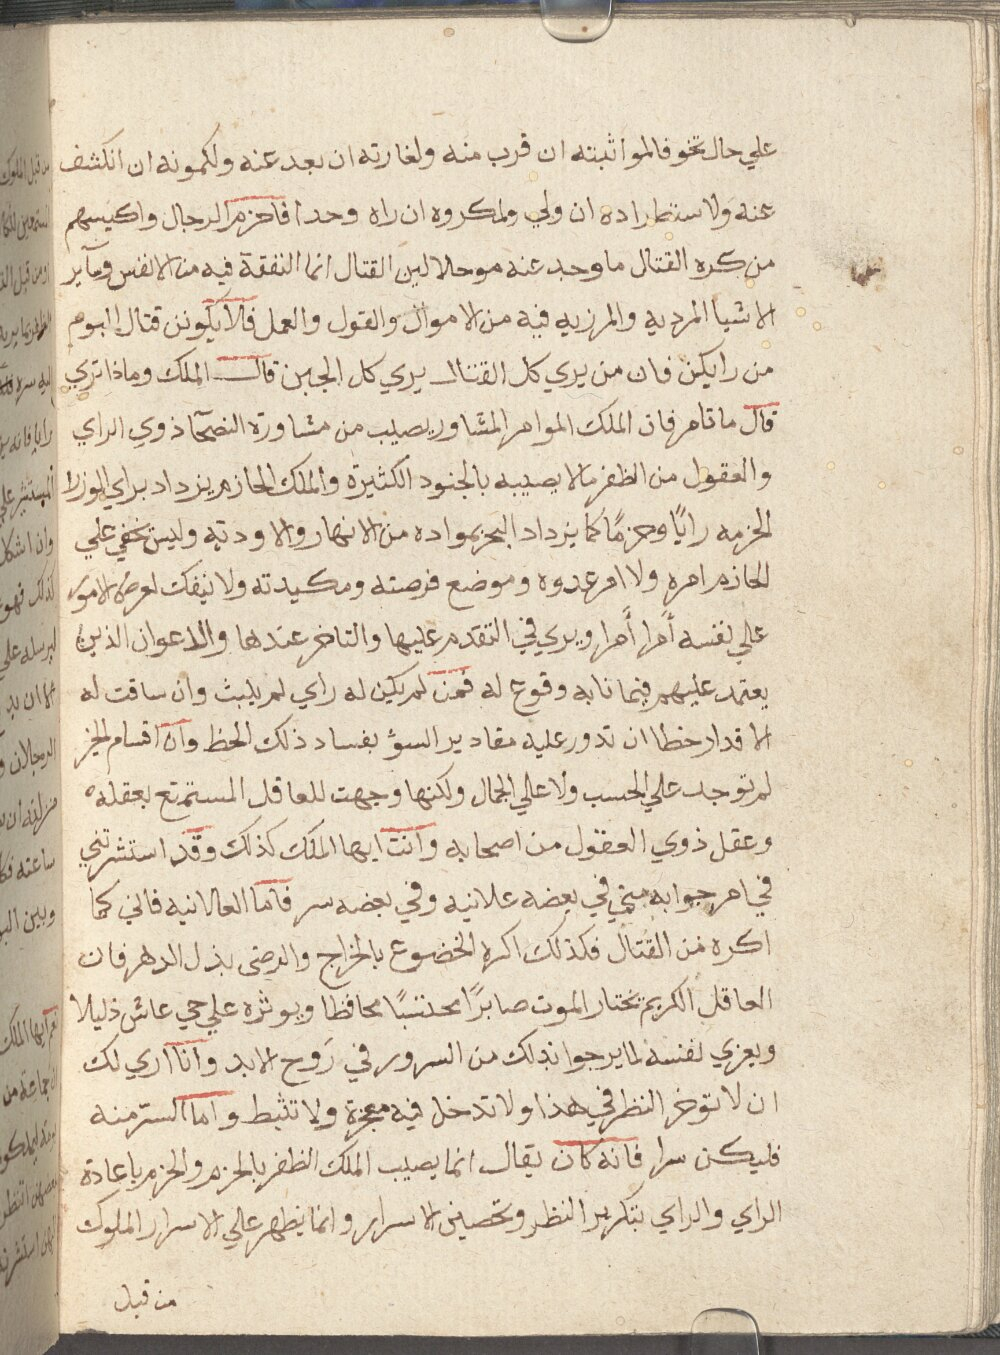 علي حال تخوفا لمواثبته ان قرب منه ولغارته ان بعد عنه ولكمونه ان انكشف
عنه ولاستطراده ان ولي ولمكروه ان راه وحدا فاحزم الرجال واكيسهم
من كره القتال ما وجد عنه موحلا لين القتال انما النفقة فيه من الانفس وسآير
الاشيا المرديه والمرزيه فيه من الاموال والقول والعمل فلا يكونن قتال البوم
من رايكن فان من يري كل القتال يري كل الجبن قال الملك وماذا تري
قال ما تامر فان الملك الموامر المشاور يصيب من مشاورة النصحآ ذوي الراي
والعقول من الظفر ما لا يصيبه بالجنود الكثيرة والملك الحازم يزداد براي الوزرا
الحزمه رايًا وحزمًا كما يزداد البحر بمواده من الانهار والاوديه وليس يخفي علي
الحازم امره ولا امر عدوه وموضع فرصته ومكيدته ولا ينفك لعرض الامور
علي نفسه أمرا أمرا ويري في التقدم عليها والتاخر عندها والاعوان الذين
يعتمد عليهم فيما نابه وقوع له فمن لم يكن له راي لم يلبث وان ساقت له
الاقدار خطا ان تدور عليه مقادير السؤ بفساد ذلك الحظ وان اقسام الخز
لم توجد علي الحسب ولا علي الجمال ولكنها وجهت للعاقل المستمتع بعقله
وعقل ذوي العقول من اصحابه وانت ايها الملك كذلك وقد استشرتني
في امر جوابه مني في بعضه علانيه وفي بعضه سر فاما العلانيه فاني كما
اكره من القتال فكذلك اكره الخضوع بالخراج والرضي بذل الدهر فان
العاقل الكريم يختار الموت صابرًا محتسبًا محافظا ويوثره علي حي عاش ذليلا
ويعزي لنفسه لما يرجوا بذلك من السرور في رَوح الابد وانا اري لك
ان لا توخر النظر في هذا ولا تدخل فيه معجزة ولا تثبط واما السرّ منه
فليكن سرا فانه كان يقال انما يصيب الملك الظفر بالحزم والحزم باعادة
الراي والراي بتكرير النظر وتحصين الاسرار وانما يظهر علي الاسرار الملوك
من قبل